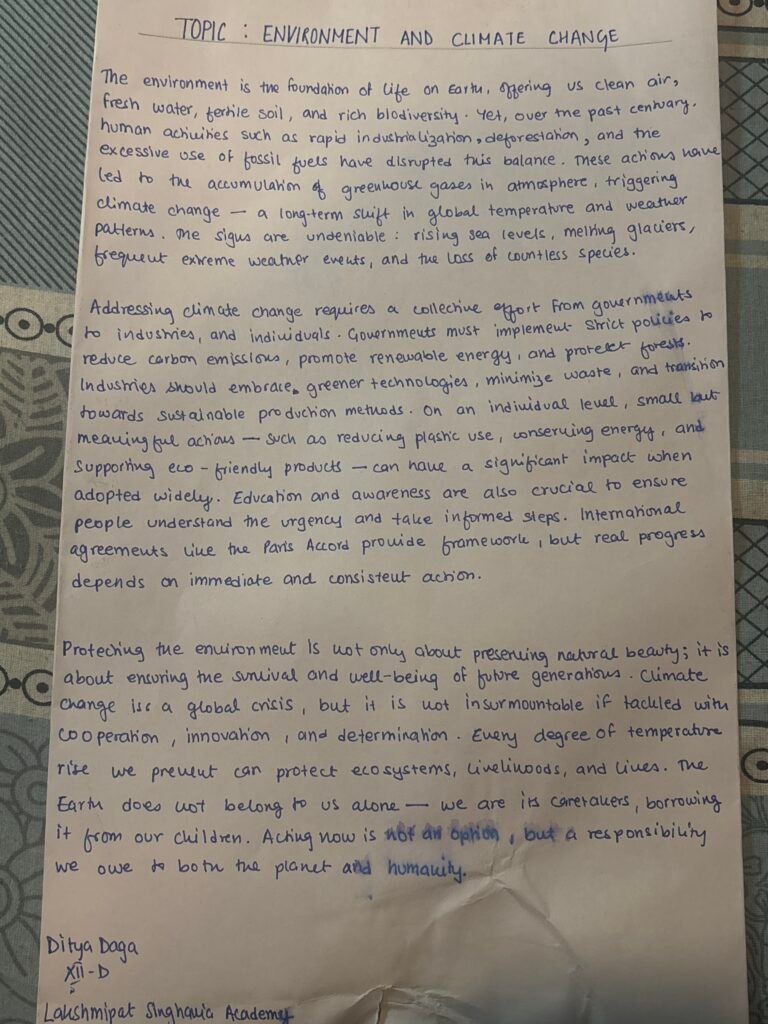 TOPIC : ENVIRONMENT AND CLIMATE CHANGE
The environment is the foundation of life on Earth, offering us clean air,
fresh water, fertile soil, and rich biodiversity. Yet, over the past century.
human activities such as rapid industrialization, deforestation, and the
excessive use of fossil fuels have disrupted this balance. These actions have
led to the accumulation of greenhouse gases in atmosphere, triggering
climate change — a long-term shift in global temperature and weather
patterns. The signs are undeniable : rising sea levels, melting glaciers,
frequent extreme weather events, and the loss of countless species.
Addressing climate change requires a collective effort from governments
to industries, and individuals. Governments must implement strict policies to
reduce carbon emissions, promote renewable energy, and protect forests.
Industries should embrace greener technologies, minimize waste, and transition
towards sustainable production methods. On an individual level, small but
meaningful actions — such as reducing plastic use, conserving energy, and
supporting eco-friendly products — can have a significant impact when
adopted widely. Education and awareness are also crucial to ensure
people understand the urgency and take informed steps. International
agreements like the Paris Accord provide framework, but real progress
depends on immediate and consistent action.
Protecting the environment is not only about preserving natural beauty; it is
about ensuring the survival and well-being of future generations. Climate
change is a global crisis, but it is not insurmountable if tackled with
cooperation, innovation, and determination. Every degree of temperature
rise we prevent can protect ecosystems, livelihoods, and lives. The
Earth does not belong to us alone — we are its caretakers, borrowing
it from our children. Acting now is not an option, but a responsibility
we owe to both the planet and humanity.
Ditya Daga
XII-D
Lakshmipat Singhania Academy